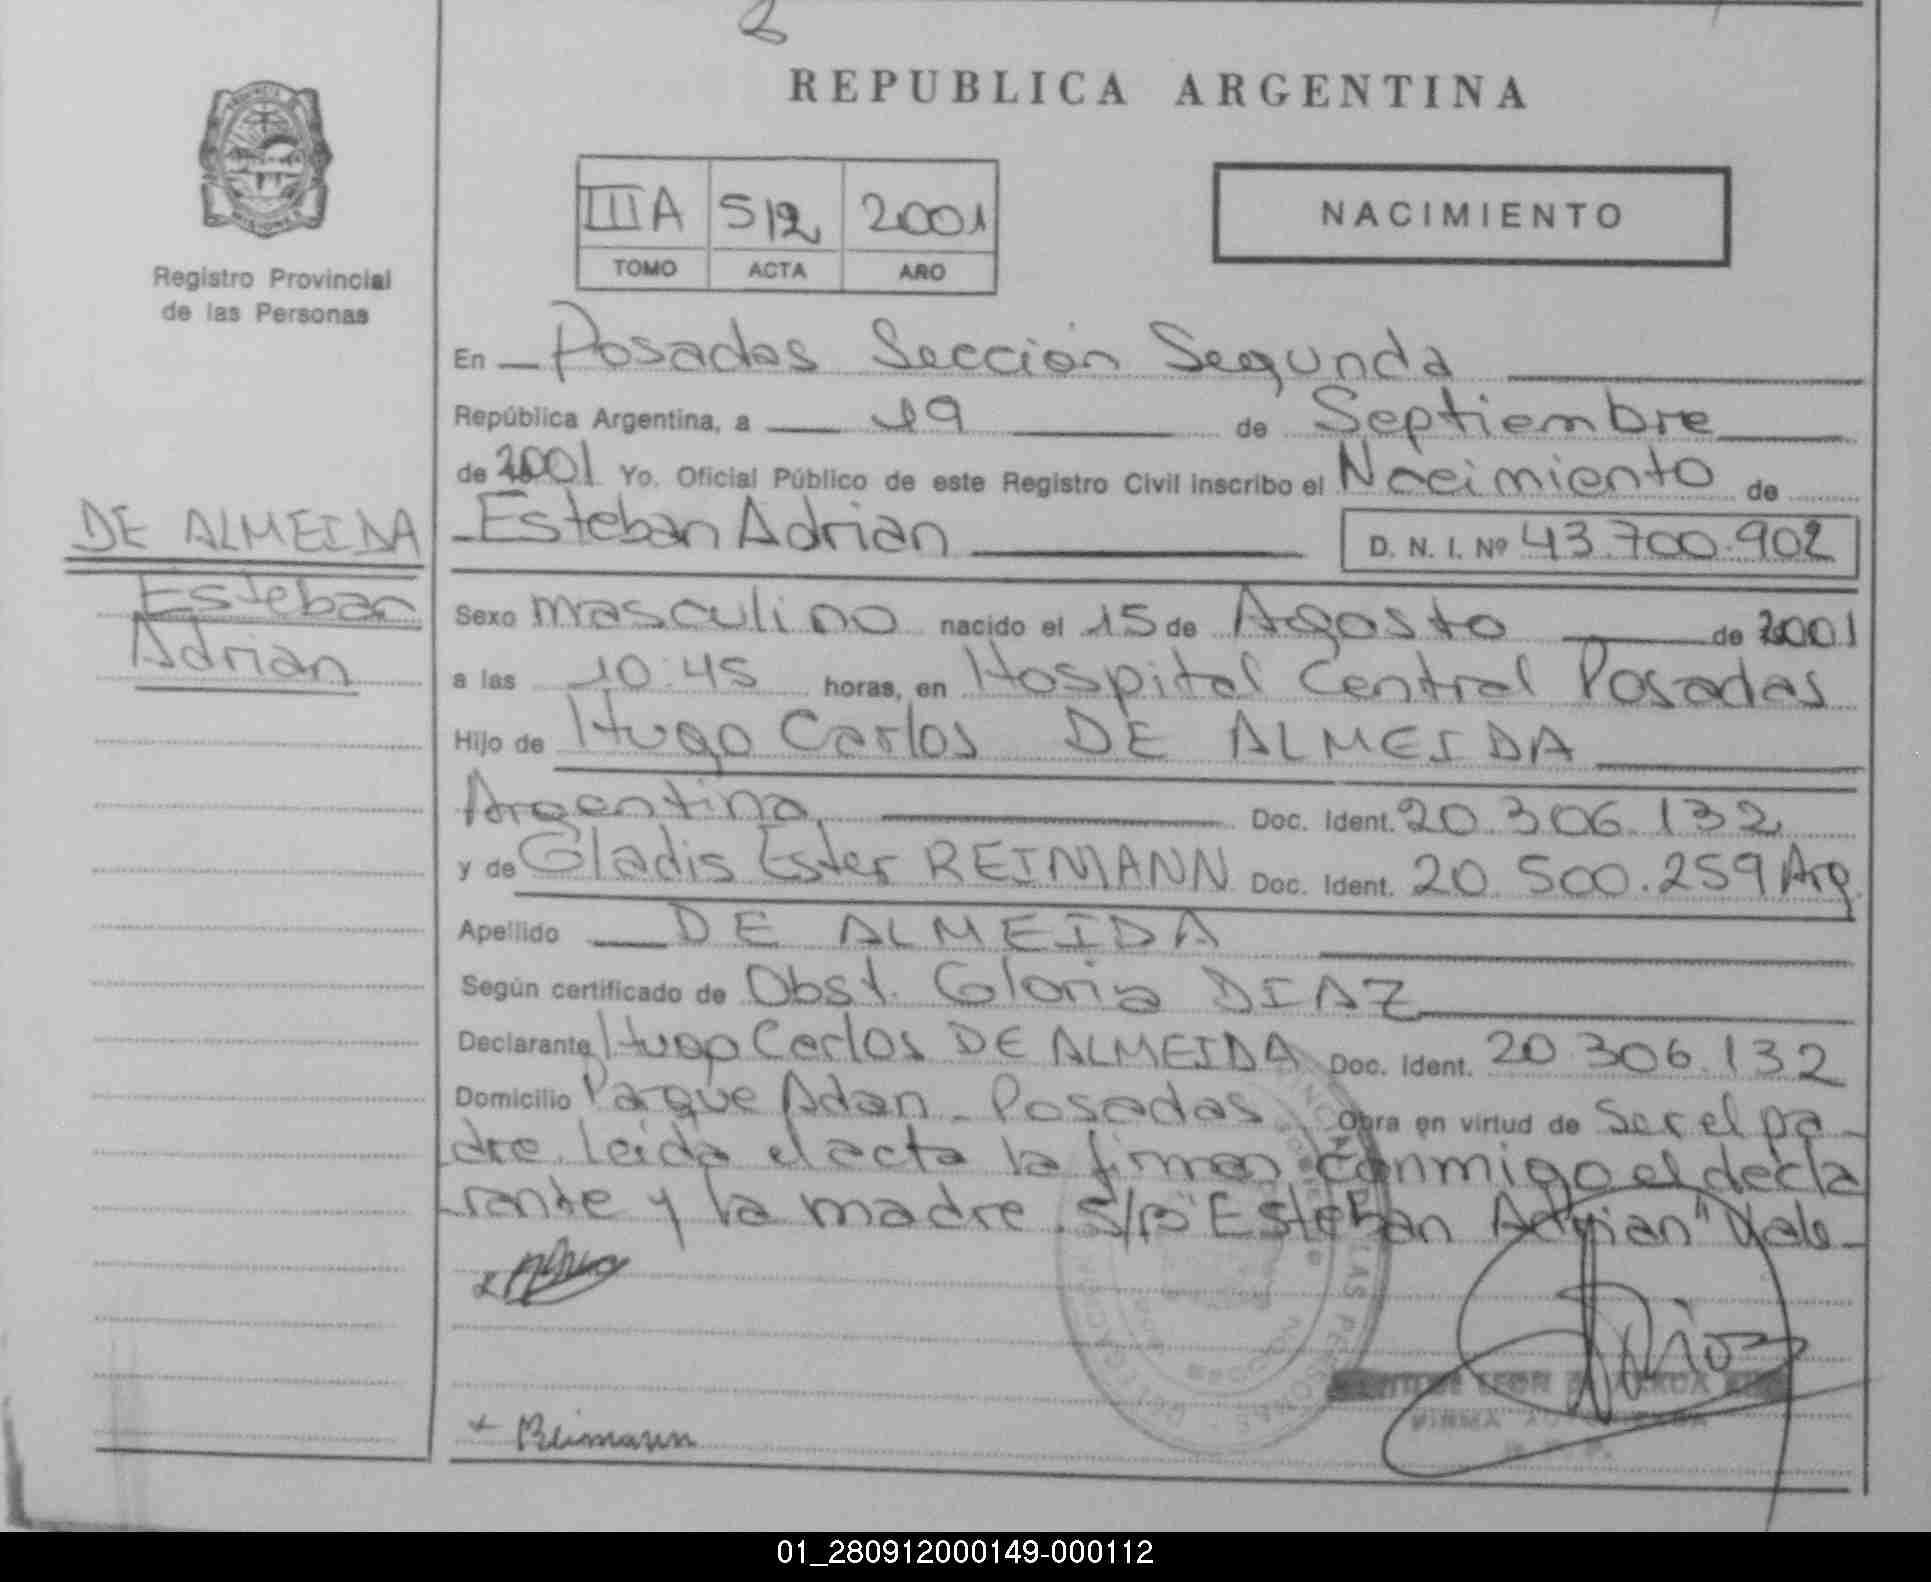 REPUBLICA ARGENTINA
IIIA 512 2001
TOMO ACTA AÑO
NACIMIENTO
Registro Provincial
de las Personas
DE ALMEIDA
Esteban
Adrian
En Posadas Sección Segunda
República Argentina, a 19 de Septiembre
de 2001 Yo. Oficial Público de este Registro Civil inscribo el Nacimiento de
Esteban Adrian D. N. I. Nº 43.700.902
Sexo masculino nacido el 15 de Agosto de 2001
a las 10:45 horas, en Hospital Central Posadas
Hijo de Hugo Carlos DE ALMEIDA
Argentina Doc. Ident. 20.306.132
y de Gladis Ester REIMANN Doc. Ident. 20.500.259 Arg.
Apellido DE ALMEIDA
Según certificado de Obst. Gloria DIAZ
Declarante Hugo Carlos DE ALMEIDA Doc. Ident. 20.306.132
Domicilio Parque Adan - Posadas Obra en virtud de ser el pa-
dre. leida el acta la firman conmigo el decla
rante y la madre. S/R "Esteban Adrian" Vale-
Reimann
01_280912000149-000112